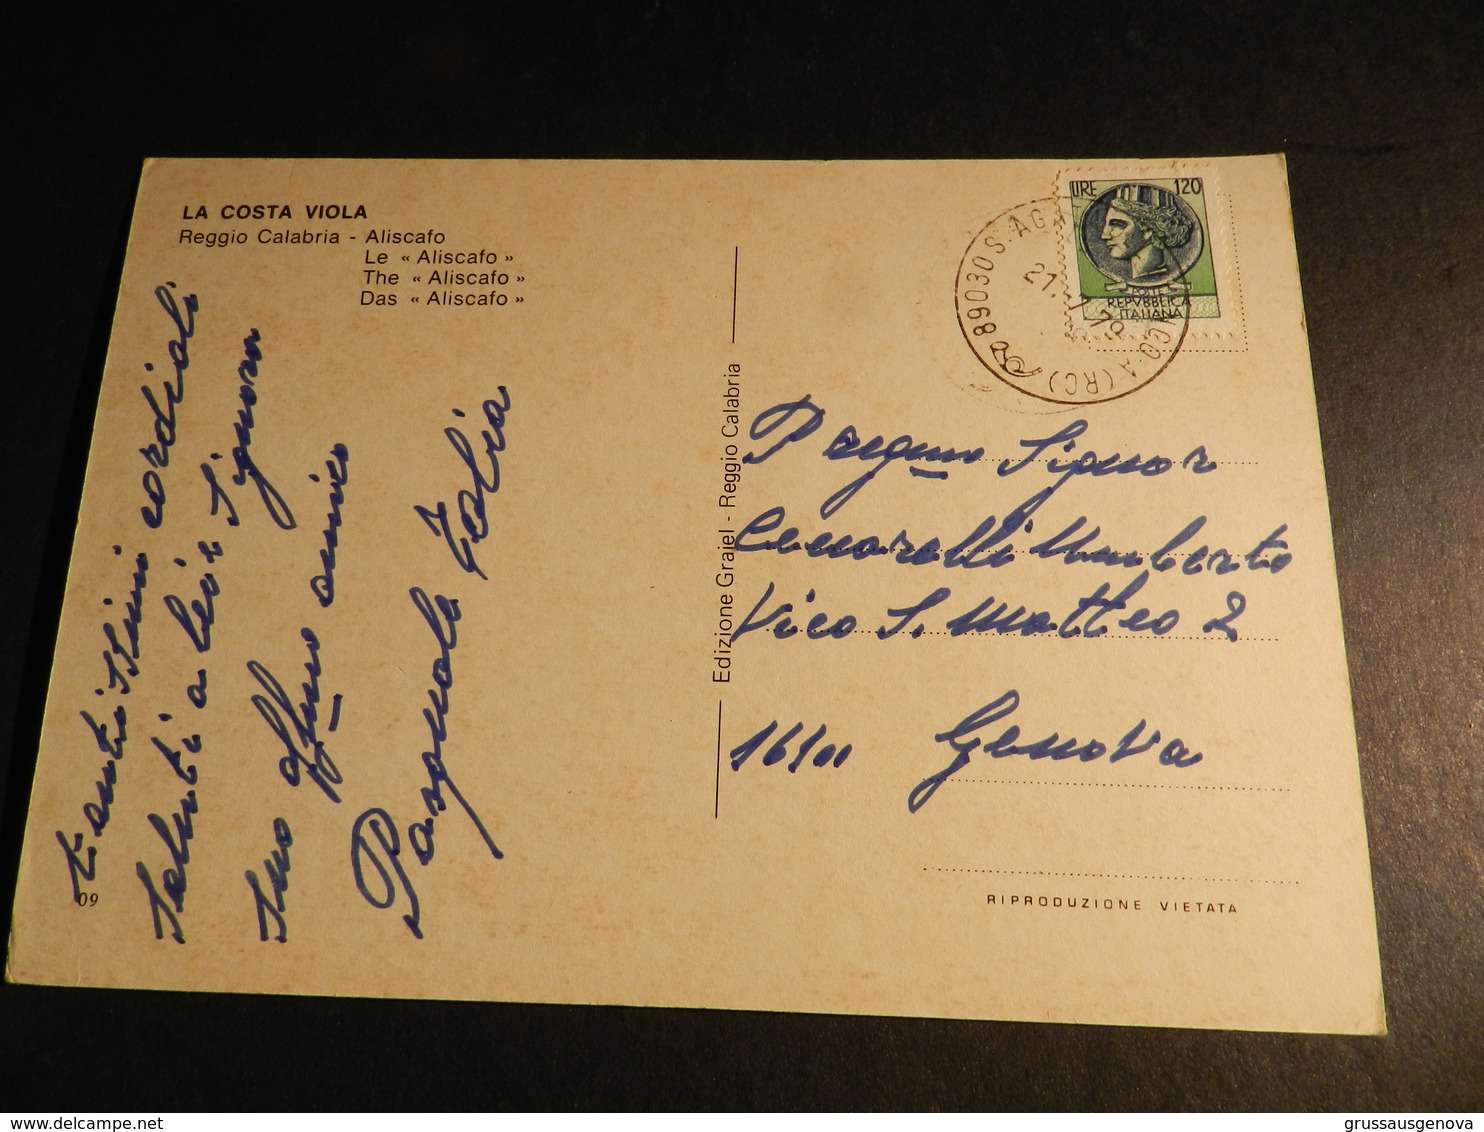 LA COSTA VIOLA
Reggio Calabria - Aliscafo
Le « Aliscafo »
The « Aliscafo »
Das « Aliscafo »
tantissimi cordiali
Saluti a lei e Signora
Suo affmo amico
Pasquale Italia
09
Edizione Graiel - Reggio Calabria
LIRE 120
POSTE
REPVBBLICA
ITALIANA
89030 S. AGA NCO-A (RC)
21.
Pregmo Signor
Umberto
Vico S. Matteo 2
Genova
RIPRODUZIONE VIETATA
grussausgenova